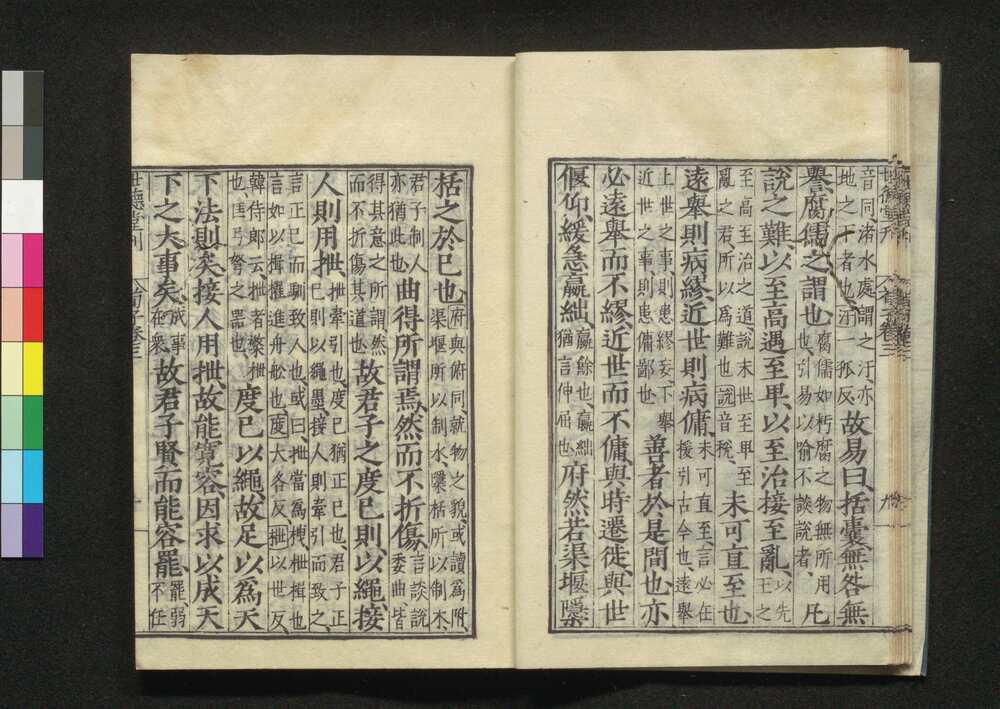 音同渚水處謂之汙亦地之下者也汙一孤反故易曰括囊無咎無
譽腐儒之謂也腐儒如朽腐之物無所用也引易以喻不談說者凡
說之難以至高遇至卑以至治接至亂以先王之
至高至治之道說末世至卑至亂之君所以爲難也說音稅未可直至也
遠舉則病繆近世則病傭未可直至言必在援引古今也遠舉
上世之事則患繆妄下舉近世之事則患傭鄙也善者於是間也亦
必遠舉而不繆近世而不傭與時遷徙與世
偃仰緩急嬴絀嬴餘也嬴絀猶言伸屈也府然若渠堰檃
栝之於已也府與俯同就物之貌或讀爲附渠堰所以制水檃栝所以制木
君子制人亦猶此也曲得所謂焉然而不折傷言談說委曲皆
得其意之所謂然而不折傷其道也故君子之度已則以繩接
人則用抴抴牽引也度已猶正已也君子正已則以繩墨接人則牽引而致之
言正已而馴致人也或曰抴當爲枻枻楫也言如以楫櫂進舟舩也度大各反抴以世反
韓侍郎云抴者檠枻也正弓弩之器也度已以繩故足以爲天
下法則矣接人用抴故能寬容因求以成天
下之大事矣成事在衆故君子賢而能容罷罷弱不任